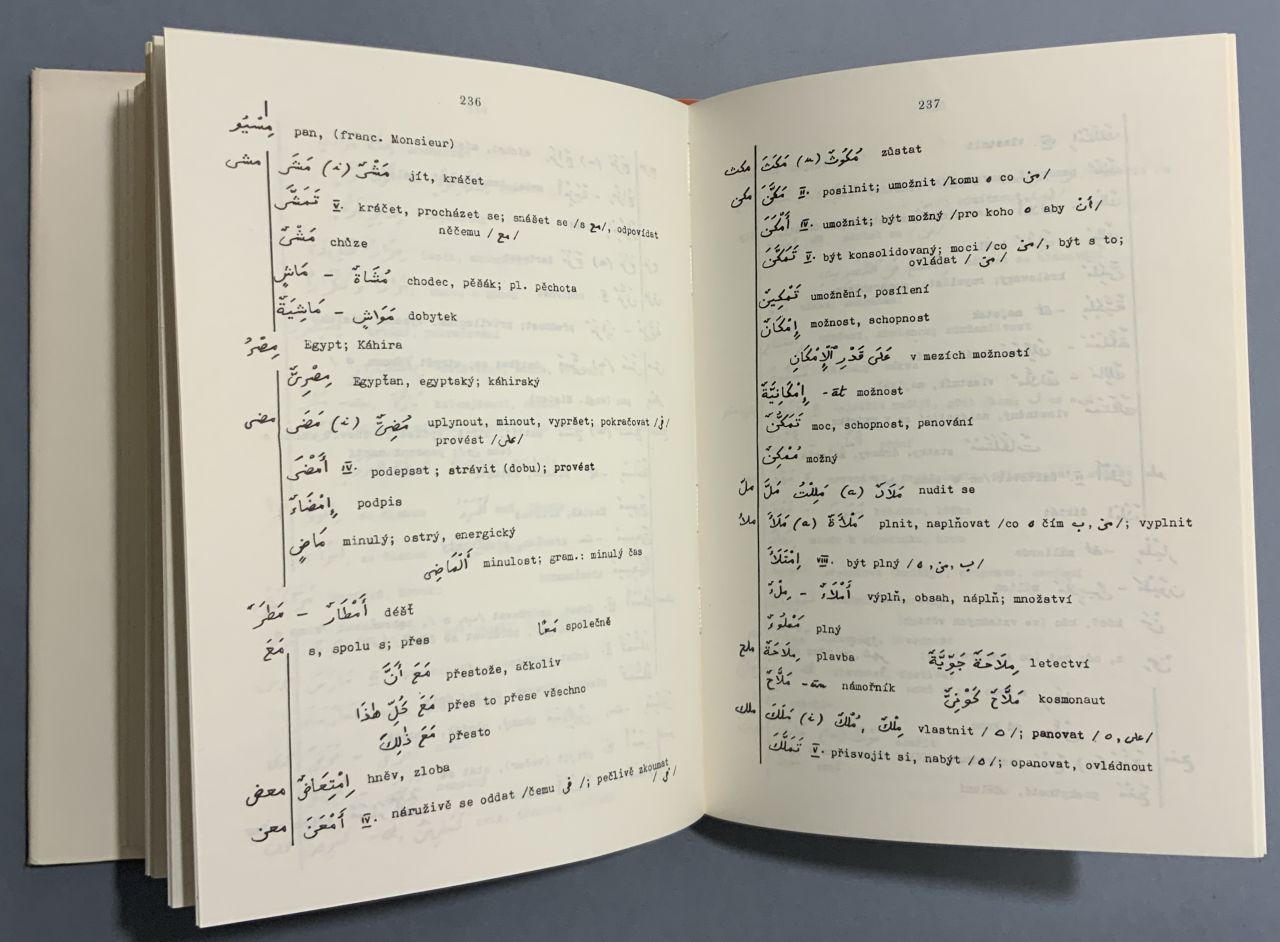 236
مِسْيُو pan, (franc. Monsieur)
مشى مَشَى (i) مَشْىٌ jít, kráčet
تَمَشَّى V. kráčet, procházet se; snášet se /s مع/, odpovídat
něčemu /مع/
مَشْىٌ chůze
مَاشٍ – مُشَاةٌ chodec, pěšák; pl. pěchota
مَاشِيَةٌ – مَوَاشٍ dobytek
مِصْرُ Egypt; Káhira
مِصْرِىٌّ Egypťan, egyptský; káhirský
مضى مَضَى (i) مُضِىٌّ uplynout, minout, vypršet; pokračovat /فى/
provést /على/
أَمْضَى IV. podepsat; strávit (dobu); provést
إِمْضَاءٌ podpis
مَاضٍ minulý; ostrý, energický
أَلْمَاضِى minulost; gram.: minulý čas
مَطَرٌ – أَمْطَارٌ déšť
مَعَ s, spolu s; přes مَعًا společně
مَعَ أَنَّ přestože, ačkoliv
مَعَ كُلِّ هٰذَا přes to přese všechno
مَعَ ذٰلِكَ přesto
معض اِمْتِعَاضٌ hněv, zloba
معن أَمْعَنَ IV. náruživě se oddat /čemu فى/; pečlivě zkoumat
/فى/
237
مكث مَكَثَ (u) مُكُوثٌ zůstat
مكن مَكَّنَ II. posilnit; umožnit /komu ه co من/
أَمْكَنَ IV. umožnit; být možný /pro koho ه aby أَنْ/
تَمَكَّنَ V. být konsolidovaný; moci /co من/, být s to;
ovládat /من/
تَمْكِينٌ umožnění, posílení
إِمْكَانٌ možnost, schopnost
عَلَى قَدْرِ ٱلْإِمْكَانِ v mezích možností
إِمْكَانِيَّةٌ -āt možnost
تَمَكُّنٌ moc, schopnost, panování
مُمْكِنٌ možný
ملّ مَلَّ مَلِلْتُ (a) مَلَالٌ nudit se
ملأ مَلَأَ (a) مَلْأَةٌ plnit, naplňovat /co ه čím ب ,من/; vyplnit
اِمْتَلَأَ VIII. být plný /ب ,من ,ه/
مِلْءٌ – أَمْلَاءٌ výplň, obsah, náplň; množství
مَمْلُوءٌ plný
ملح مِلَاحَةٌ plavba مِلَاحَةٌ جَوِّيَّةٌ letectví
مَلَّاحٌ -ūn námořník مَلَّاحٌ كَوْنِىٌّ kosmonaut
ملك مَلَكَ (i) مُلْكٌ, مِلْكٌ vlastnit /ه/; panovat /على ,ه/
تَمَلَّكَ V. přisvojit si, nabýt /ه/; opanovat, ovládnout